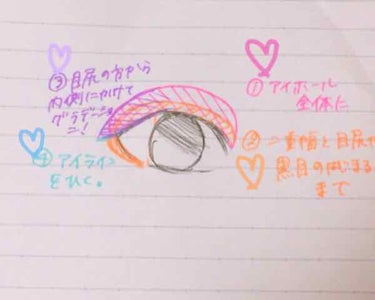 ① アイホール
全体に
② 二重幅と目尻
黒目のはじまる
まで
③ 目尻の方から
内側にかけて
グラデーショ
ン！
④ アイライン
をひく。